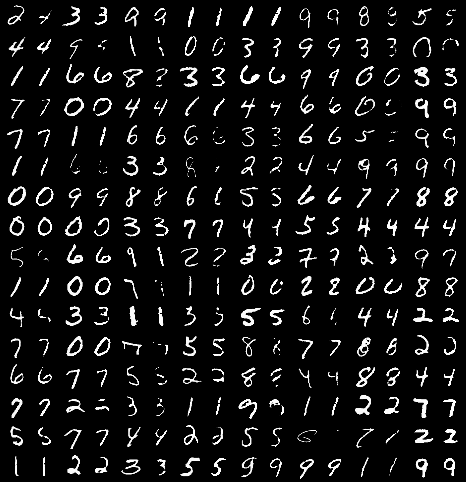 2 3 3 9 9 1 1 1 1 9 9 8 8 5 5
4 4 9 1 1 0 0 3 3 9 9 3 3 0 0
1 1 6 6 8 3 3 6 6 9 9 0 0 3 3
7 7 0 0 4 4 1 1 4 4 6 6 0 9 9
7 7 1 1 6 6 6 3 3 6 6 5 9 9
1 1 6 3 3 8 2 2 4 4 9 9 9 9
0 0 9 9 8 8 6 6 5 5 6 6 7 7 8 8
0 0 0 0 3 3 7 7 4 4 5 5 4 4 4 4
5 6 6 9 1 2 2 3 3 7 7 2 3 9 9
1 1 0 0 7 1 1 0 0 2 2 0 0 8 8
4 4 3 3 1 1 3 3 5 5 6 4 4 2 2
7 7 0 0 7 5 5 8 8 7 7 8 8 2 2
6 6 7 7 5 5 2 2 8 8 4 4 8 8 4 4
7 7 2 2 3 3 1 1 9 1 1 2 2 7 7
5 5 7 7 4 4 2 2 5 5 6 7 1 2 2
1 1 2 2 3 3 5 5 9 9 9 9 1 1 9 9